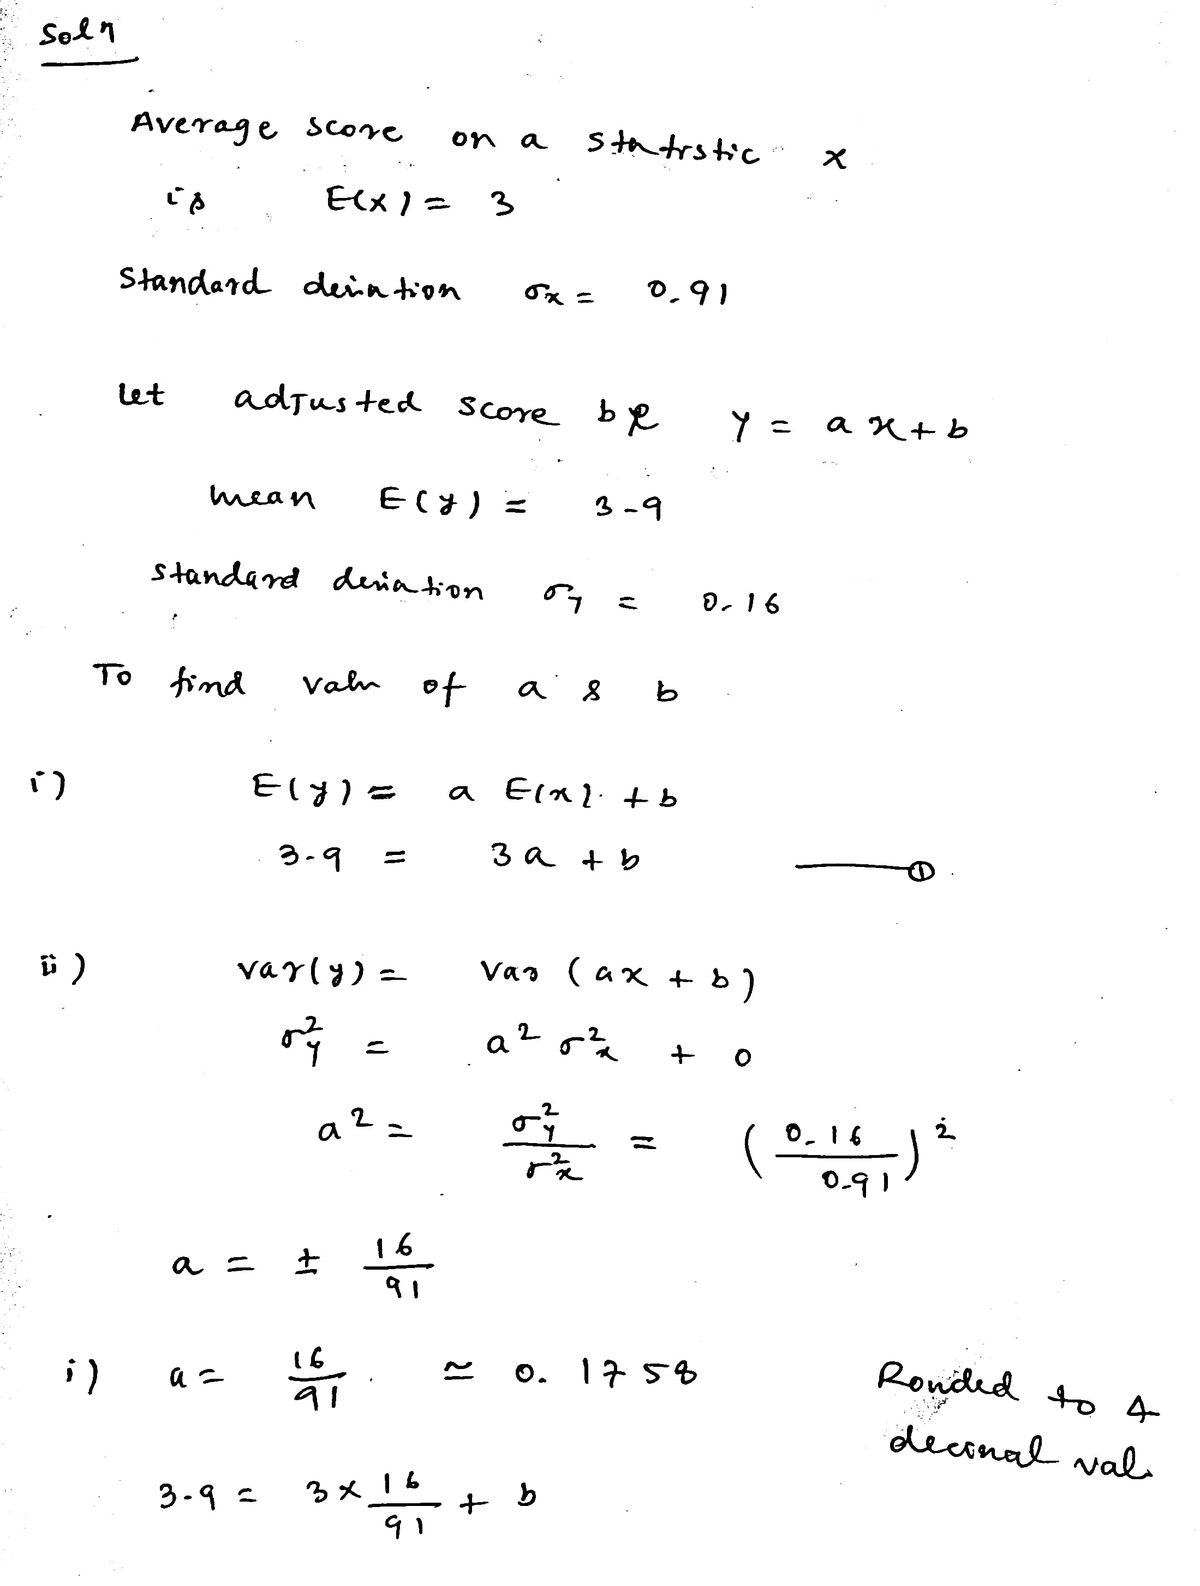 Soln
Average score on a statistic x
is E(x) = 3
Standard deviation σx = 0.91
Let adjusted score be y = ax + b
mean E(y) = 3.9
standard deviation σy = 0.16
To find valu of a & b
i) E(y) = a E(x) + b
3.9 = 3a + b ——①
ii) var(y) = var (ax + b)
σ²y = a² σ²x + 0
a² = σ²y / σ²x = (0.16 / 0.91)²
a = ± 16/91
i) a = 16/91 ≃ 0.1758 Ronded to 4
decimal val.
3.9 = 3 × 16/91 + b